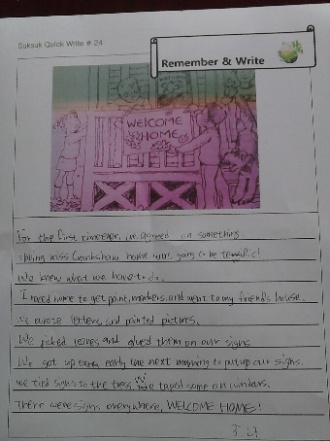 Suksuk Quick Write # 24
Remember & Write
WELCOME
HOME
For the first time ever, we agreed on something.
miss home was going to be terrific!
We knew what we have to do.
I raced home to get paint, markers, and went to my friend's house.
We wrote letters, and painted pictures.
We picked and glued them on our signs
We got up early the next morning to put up our signs.
we tied signs to the tress, we taped some on windows.
There were signs everywhere, WELCOME HOME!